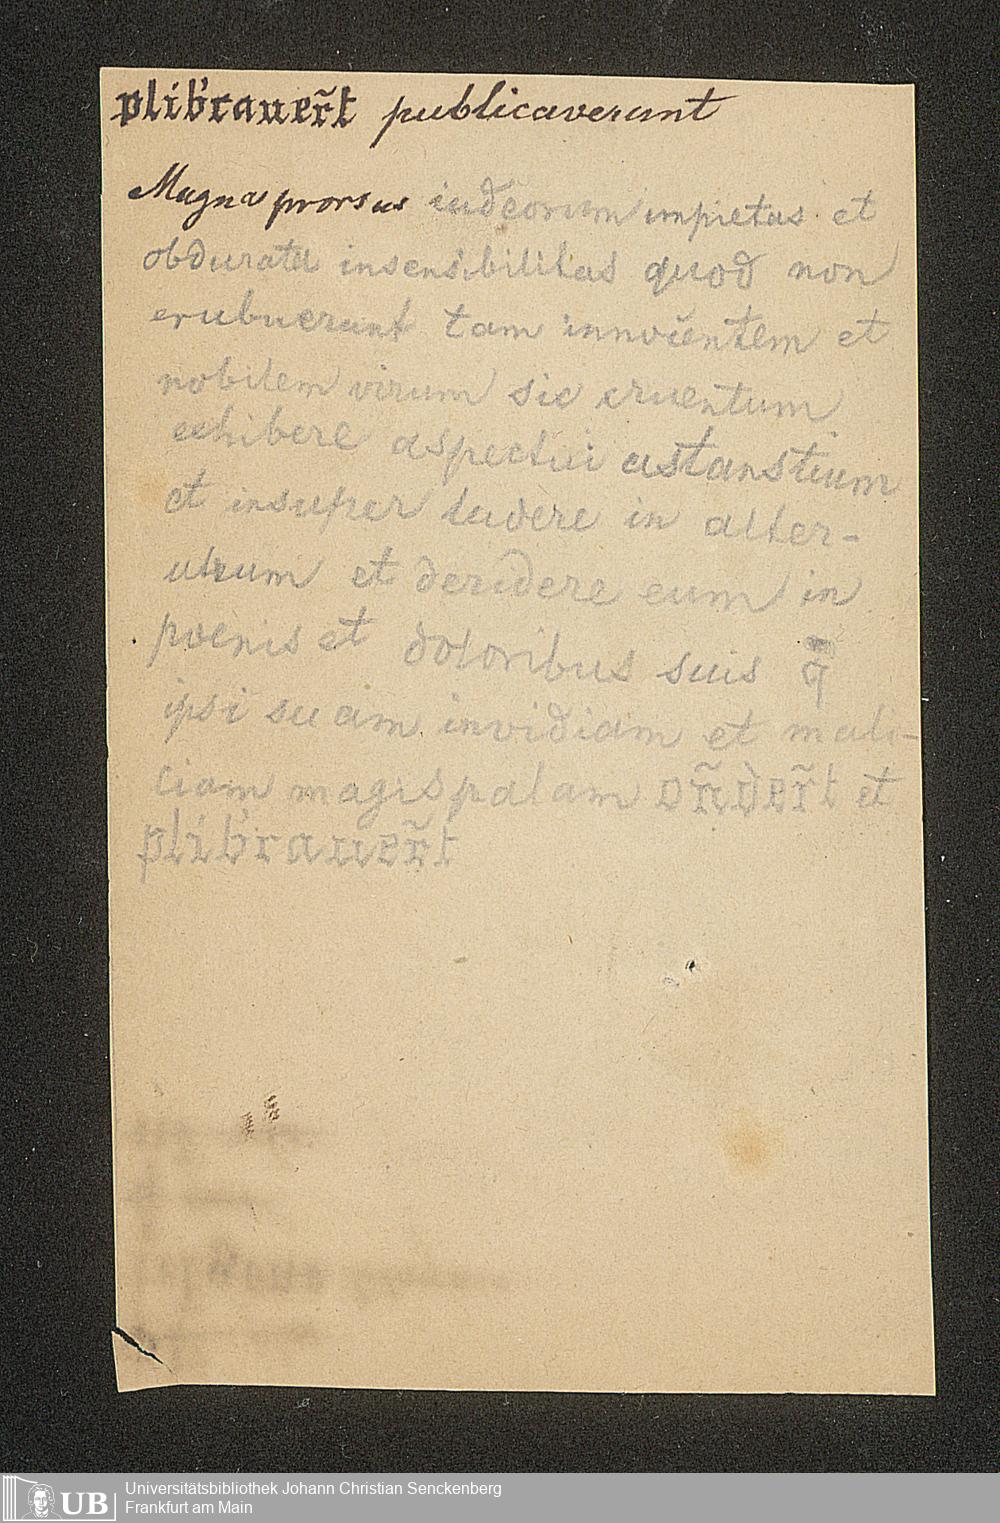 plib'rauer̃t publicaverunt
Magna prorsus iudeorum impietas et
obdurata insensibilitas quod non
erubuerunt tam innocentem et
nobilem virum sic cruentum
exhibere aspectui astanstium
et insuper ludere in alter-
utrum et deridere eum in
poenis et doloribus suis q̄
ipsi suam invidiam et mali-
ciam magis palam et
plib'rauer̃t
Universitätsbibliothek Johann Christian Senckenberg
UB Frankfurt am Main